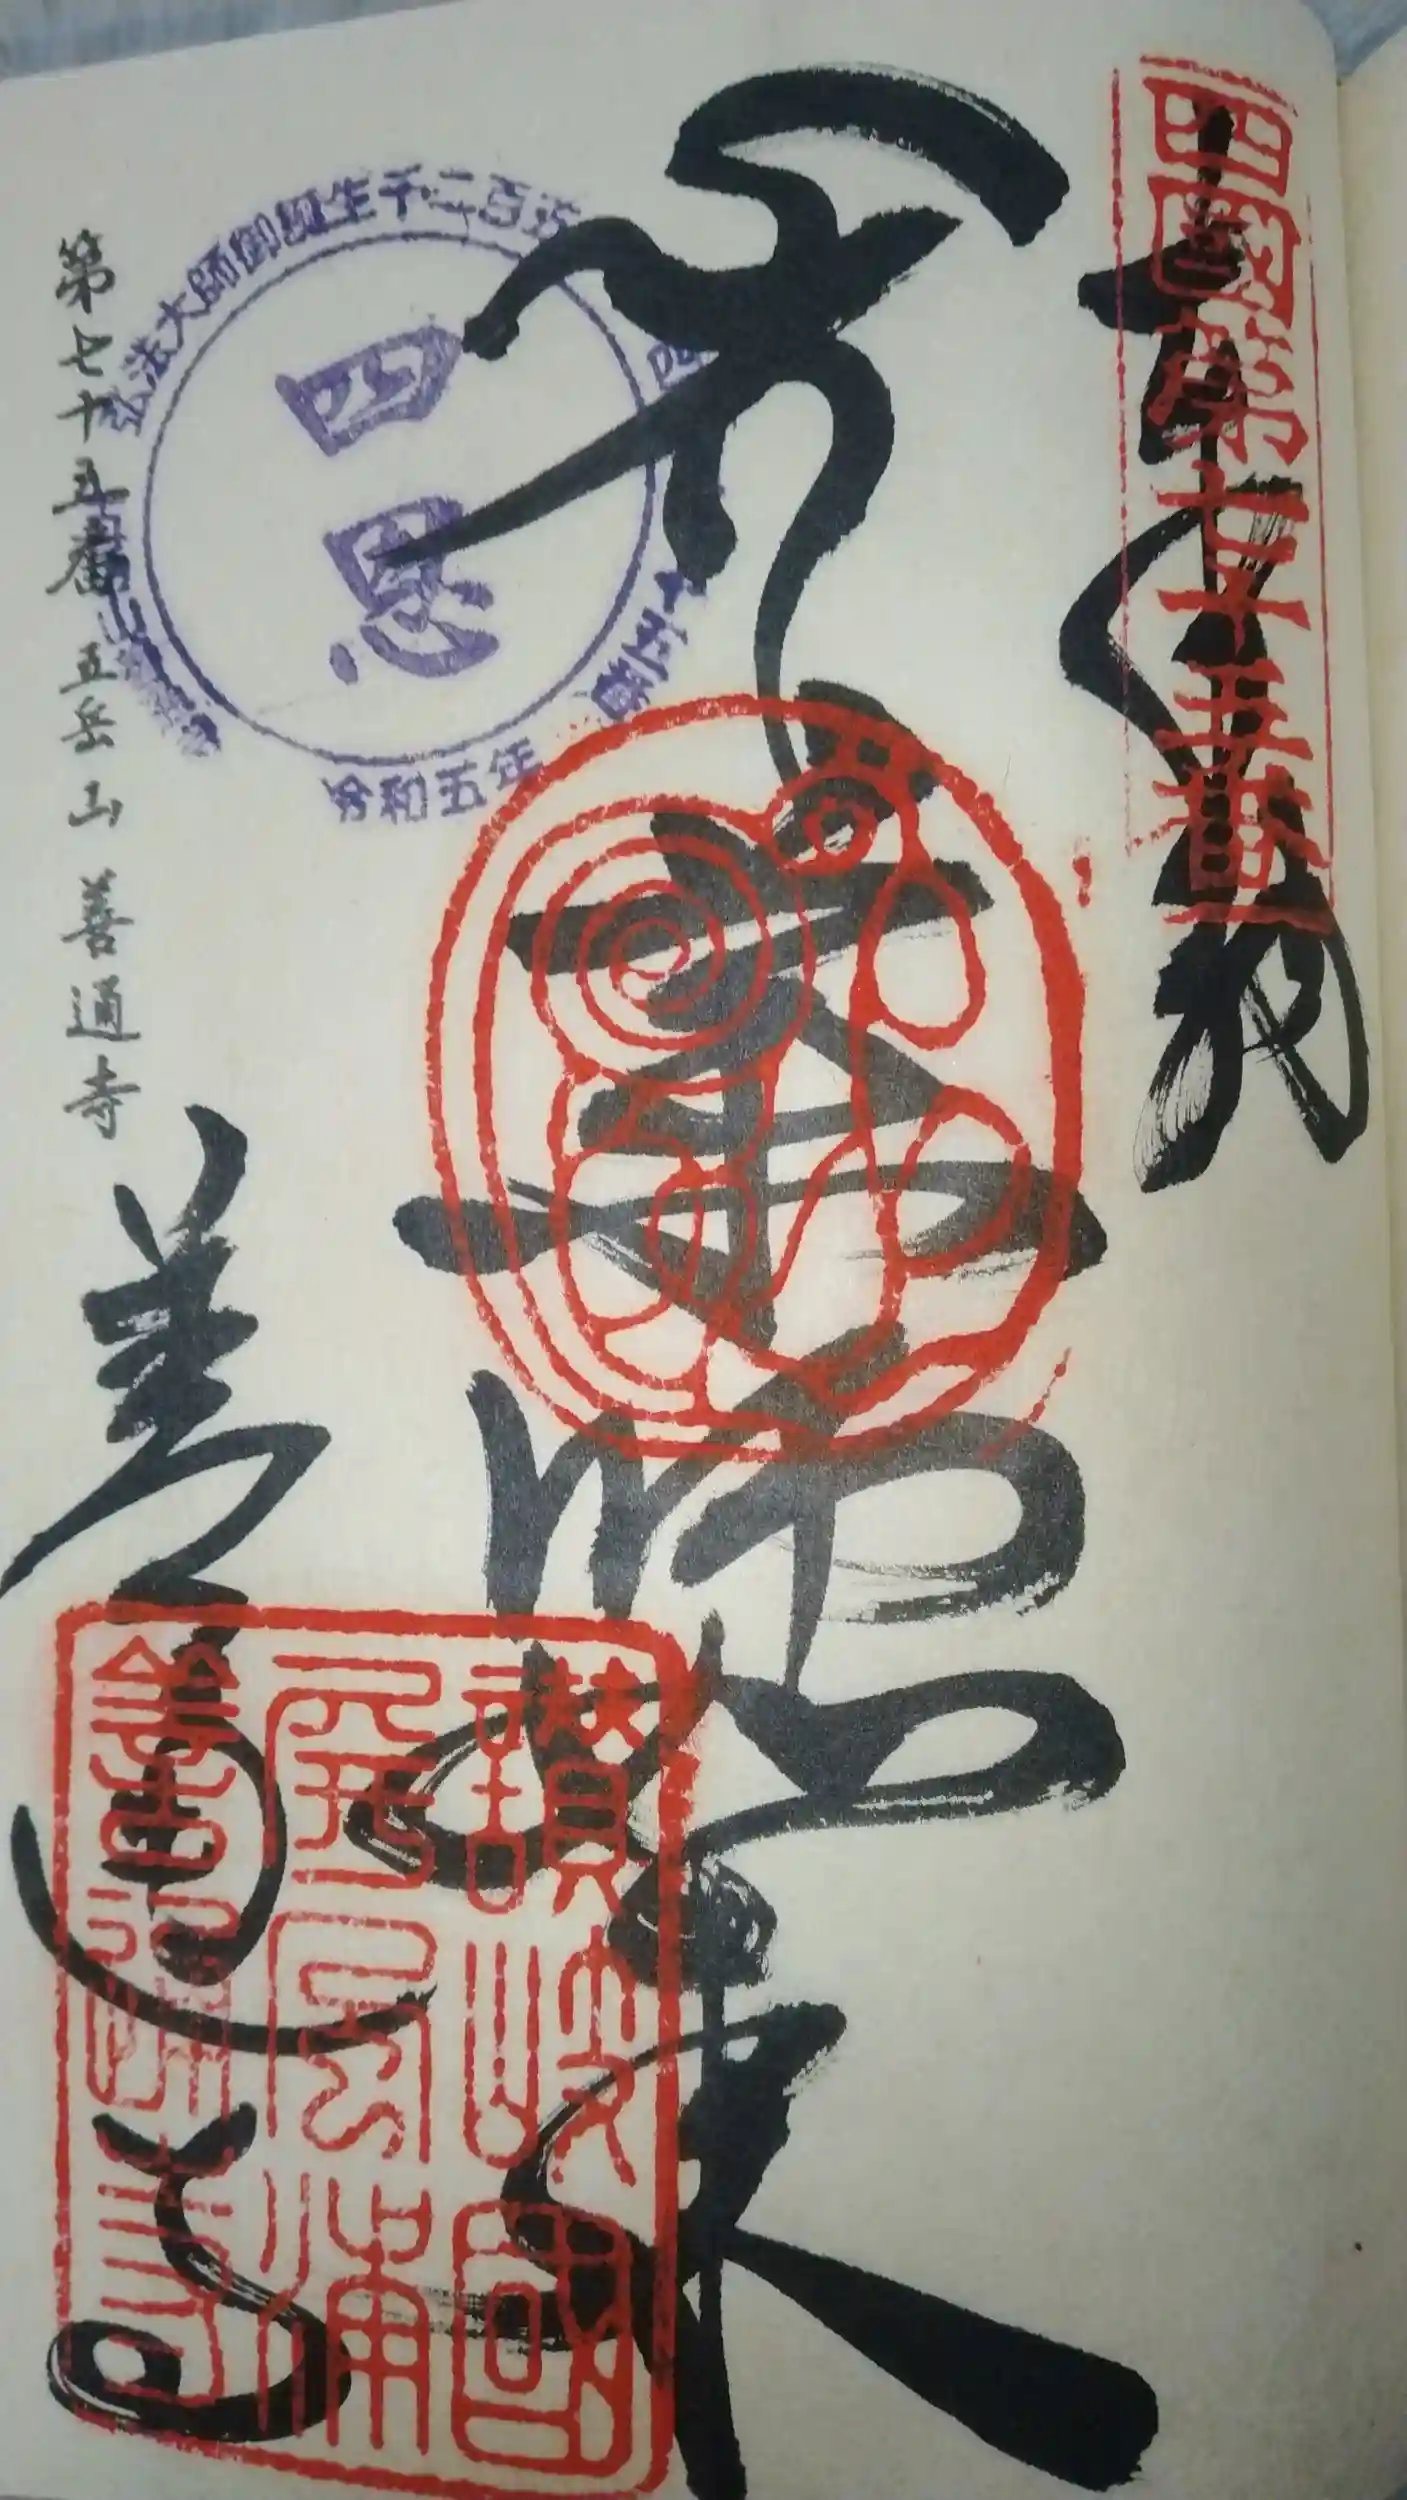 四國第七十五番
奉納
薬師如来
弘法大師御誕生千二百五
四
十五番
令和五年
四恩
讃岐國
屏風浦
善通寺
善通寺
第七十五番 五岳山 善通寺